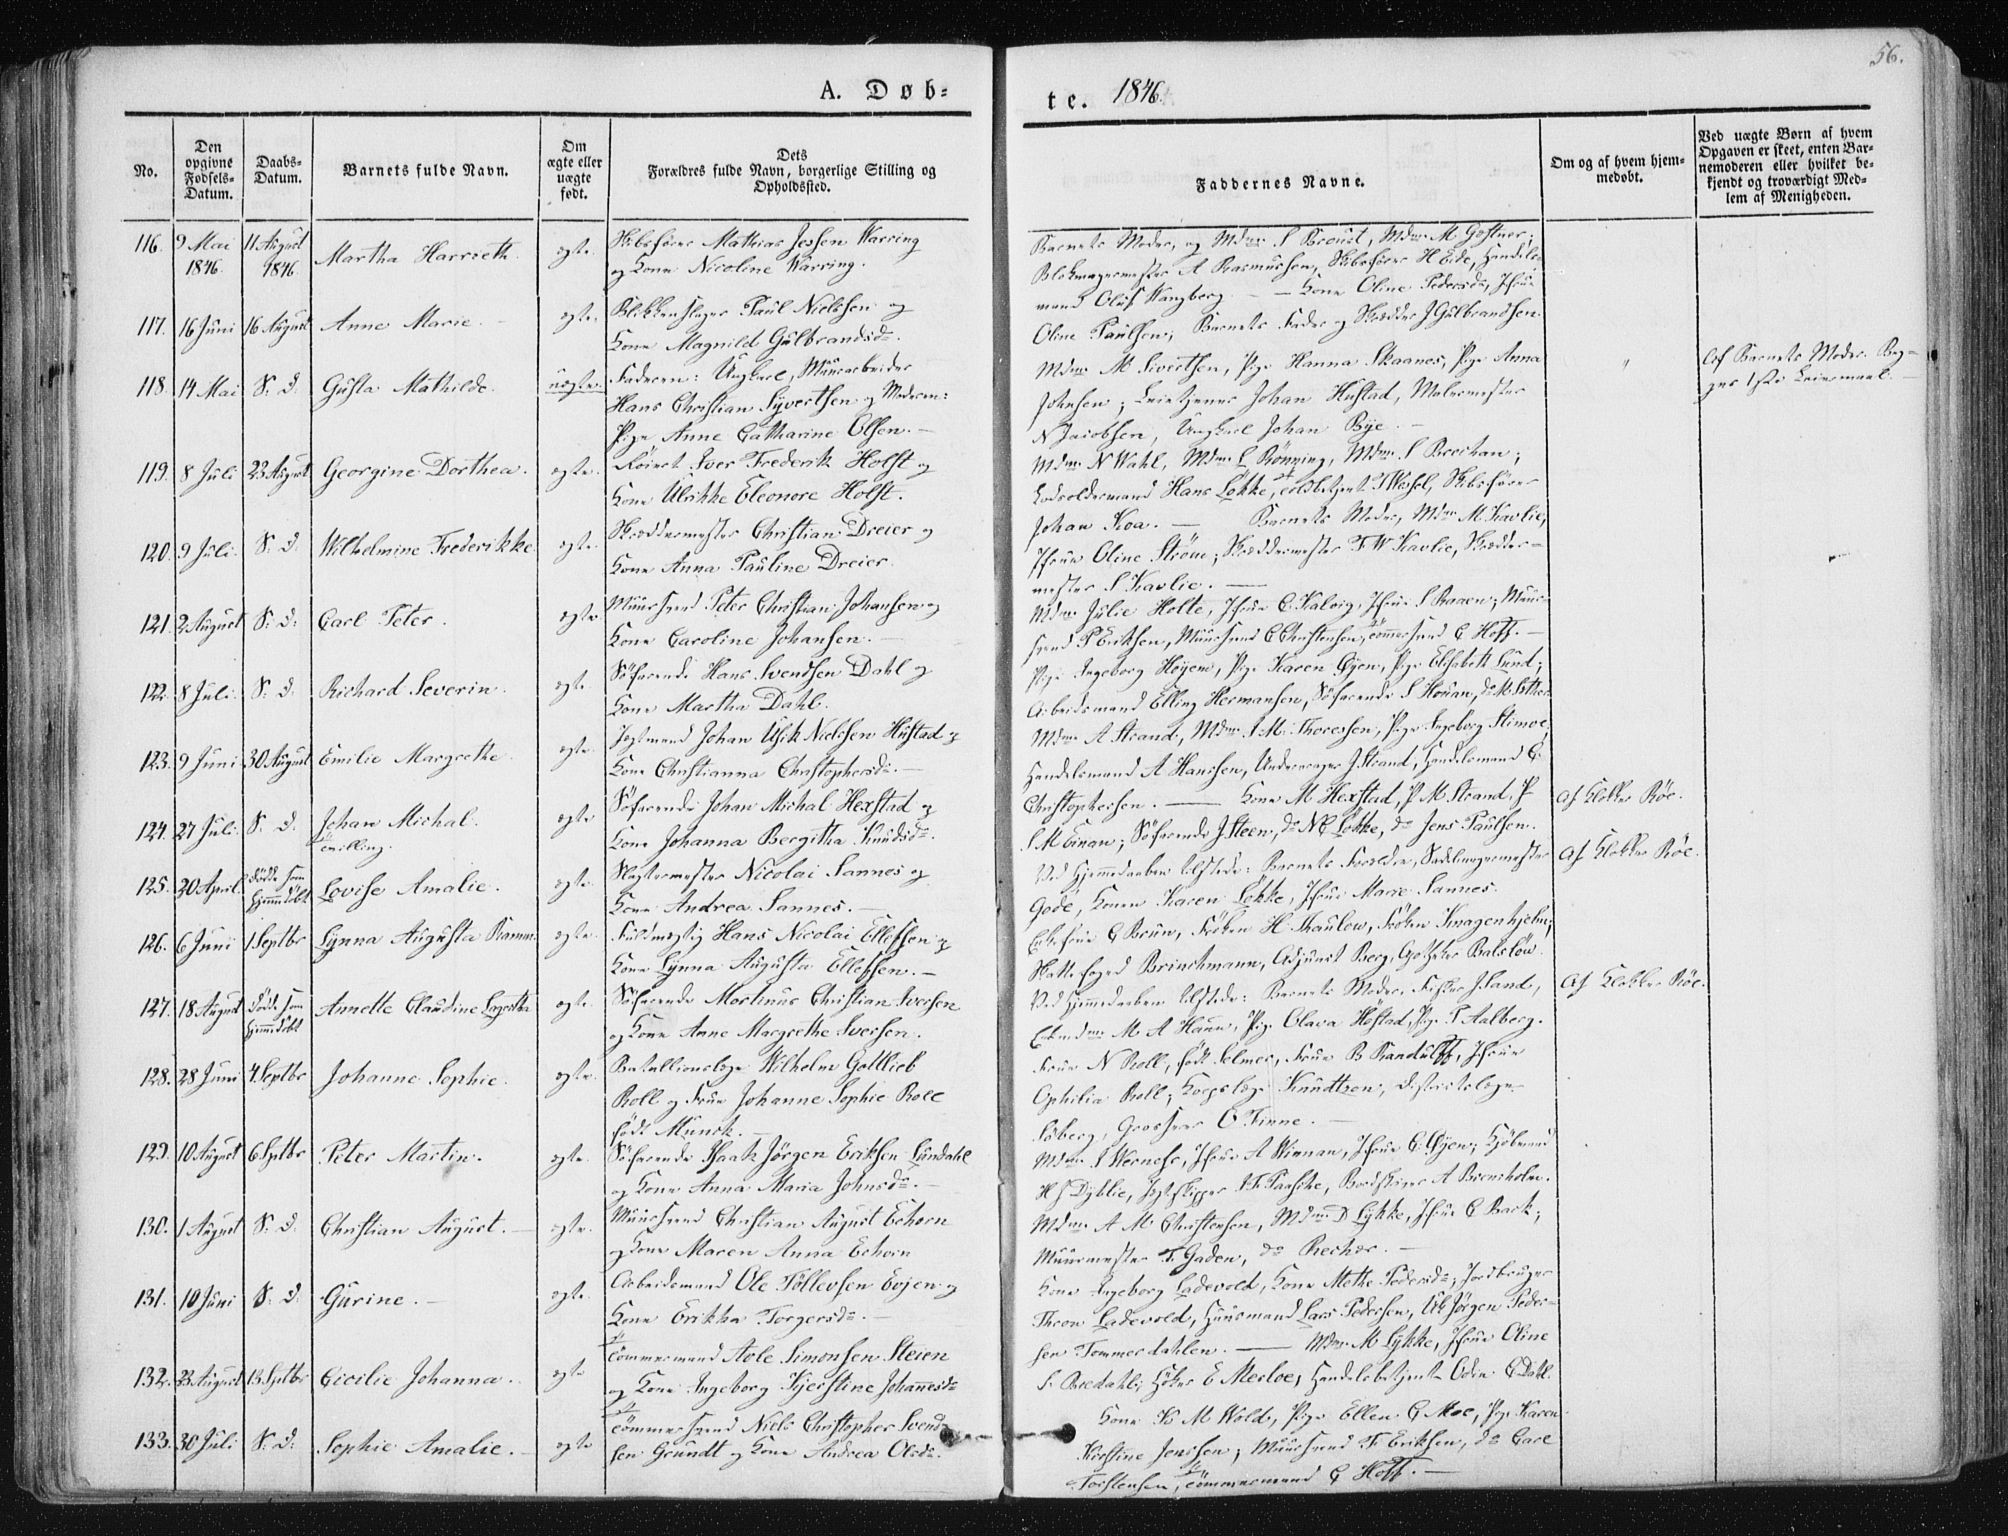 56.
A. Døb=
te. 1846.
No.
Den opgivne Fødsels-Datum.
Daabs-Datum.
Barnets fulde Navn.
Om ægte eller uægte født.
Dets Forældres fulde Navn, borgerlige Stilling og Opholdssted.
Faddernes Navne.
Om og af hvem hjemmedøbt.
Ved uægte Børn af hvem Opgaven er skeet, enten Barnemoderen eller hvilket bekjendt og troværdigt Medlem af Menigheden.
116. 9 Mai 1846. 11 August 1846. Martha Harrieth. egte. Skibsfører Mathias Jessen Warring
og Kone Nicoline Warring.
Barnets Moder, og Mdme S Broust, Mdme M Gostner;
Blokmagermester A Rasmussen, Skibsfører H Eide, Handels-
mand Oluf Wangberg.
117. 16 Juni 16 August Anne Marie. egte. Blikkenslager Paul Nielssen og
Kone Magnild Gulbrandsd.
Kone Oline Pedersd, Jfrue
Oline Paulsen; Barnets Fader og Skrædder J Gulbrandsen.
118. 14 Mai S. D. Gusta Mathilde. uegte. Faderen: Ungkarl, Muurarbeider
Hans Christian Syvertsen og Moderen:
Pige Anne Catharine Olsen.
Mdme M Sivertsen, Pige Hanna Skaanes, Pige Anna
Johnsen; Leietjener Johan Hustad, Malermester
N Jacobsen, Ungkarl Johan Bye.
" Af Barnets Moder. Beg-
ges 1ste Leiermaal.
119. 8 Juli 23 August Georgine Dorthea. egte. Iver Frederik Holst og
Kone Ulrikke Eleonore Holst.
Mdme N Wahl, Mdme L Rønning, Mdme S Brechan;
Lodsoldermand Hans Løkke, Toldbetjent J Wessel, Skibsfører
Johan Koa.
120. 9 Juli. S. D. Wilhelmine Frederikke. egte. Skræddermester Christian Dreier og
Kone Anna Pauline Dreier.
Barnets Moder, Mdme M Kavlie,
Jfrue Oline Strøm; Skræddermester F. W. Kavlie, Skrædder-
mester S Kavlie.
121. 2 August S. D. Carl Peter. egte. Muursvend Peter Christian Johansen og
Kone Caroline Johansen.
Mdme Julie Holte, Jfrue C. Kalvig, Jfrue S Baaen; Muur-
svend P Eriksen, Muursvend C Christensen, Tømmersvend C Hoff.
122. 8 Juli. S. D. Richard Severin. egte. Søfarende Hans Svendsen Dahl og
Kone Martha Dahl.
Pige Ingeborg Høyem, Pige Karen Øyen, Pige Elisabeth Lund;
Arbeidsmand Elling Hermansen, Søfarende S Houan, do M Sæther.
123. 9 Juni 30 August Emilie Margrethe. egte. Jegtmand Johan Ulrik Nielssen Hustad og
Kone Christianna Christophersd.
Mdme A Strand, Mdme A. M. Thoressen, Pige Ingeborg Stimoe,
Handelsmand A Hanssen, J Strand, Handelsmand C.
Christophersen.
124. 27 Juli. S. D. Johan Michal.
Tvilling. egte Søfarende Johan Michal Hexstad og
Kone Johanna Bergitha Knudsd.
Kone M Hexstad, P. M Strand, P
S M Einan; Søfarende J. Steen, do N C Løkke, do Jens Paulsen.
Af Klokker Røe.
125. 20 April. Døde som hjemmedøbt Lovise Amalie. egte. Slagtermester Nicolai Sannes og
Kone Andrea Sannes.
Ved Hjemmedaaben tilstede: Barnets Forældre, Sadelmagermester
Gode, Konen Karen Løkke, Jfrue Marie Sannes.
Af Klokker Røe.
126. 6 Juni 1 Septbr Lynna Augusta Ramm. egte. Fuldmægtig Hans Nicolai Ellefsen og
Kone Lynna Augusta Ellefsen.
Enkefrue C Bruun, Frøken H Thaulow, Frøken Knagenhjelm;
Skattefoged Brinchmann, Adjunct Berg, Apotheker Balsløw.
127. 18 August Døde som hjemmedøbt Annette Claudine Lagertha egte. Søfarende Mortinus Christian Iversen
og Kone Anne Margrethe Iversen.
Ved Hjemmedaaben tilstede: Barnets Moder, Fisker J. Sand,
M A Haun, Pige Olava Høstad, Pige P Aalberg.
Af Klokker Røe.
128. 28 Juni 4 Septbr Johanne Sophie. egte. Batallionslæge Wilhelm Gottlieb
Roll og Frue Johanne Sophie Roll
født Munch.
Frue N Roll, født Selmer, Frue B Randulff, Jfrue
Ophilia Roll; Korpslæge Knudtzon, Districtslæge
Søberg, Grosserer O Finne.
129. 10 August 6 Septbr Peter Martin. egte. Søfarende Isaak Jørgen Eriksen Lundahl
og Kone Anna Maria Johnsd.
Mdme S Werness, Jfrue A Winnan, Jfrue C. Øyen; Kjøbmand
H J Dyblie, Jegtskipper J. F. Paaske, A Bremholm.
130. 1 August S. D. Christian August. egte. Muursvend Christian August Echorn
og Kone Maren Anna Echorn
Mdme A M Christensen, Mdme D Lykke, Jfrue C Back;
Muurmester F. Gaden, do Recher.
131. 10 Juni S. D. Gurine. egte. Arbeidsmand Ole Tøllevsen Evjen og
Kone Erikka Torgersd.
Kone Ingeborg Ladevold, Kone Methe Pedersd; Jordbruger
Thron Ladevold, Huusmand Lars Pedersen, UK Jørgen Peder-
sen Tommerdahlen.
132. 23 August 13 Septbr Cicilie Johanna. egte Tømmermand Atle Simonsen Steien
og Kone Ingeborg Kjerstine Johannesd
Mdme M Lykke, Jfrue Oline
S. Bredahl; Høker E Merloe, Handelsbetjent Odin C Dahl.
133. 30 Juli S. D. Sophie Amalie. egte Tømmersvend Niels Christopher Svend-
sen Grundt og Kone Andrea Olsd.
Kone K M Wold, Pige Ellen C Moe, Pige Karen
Kirstine Jenssen; Muursvend F. Eriksen, do Carl
Torstensen, Tømmermand C Hoff.